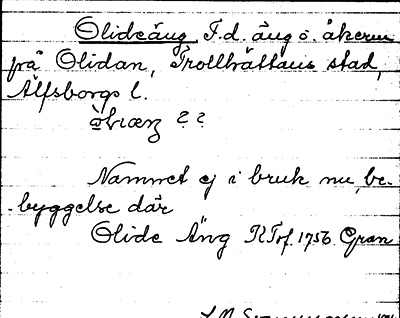 Olideäng F.d. äng o. åkerm
på Olidan, Trollhättans stad,
Älfsborgs l.
? ?
Namnet ej i bruk nu, be-
byggelse där
Olide Äng RTof. 1756 Gran